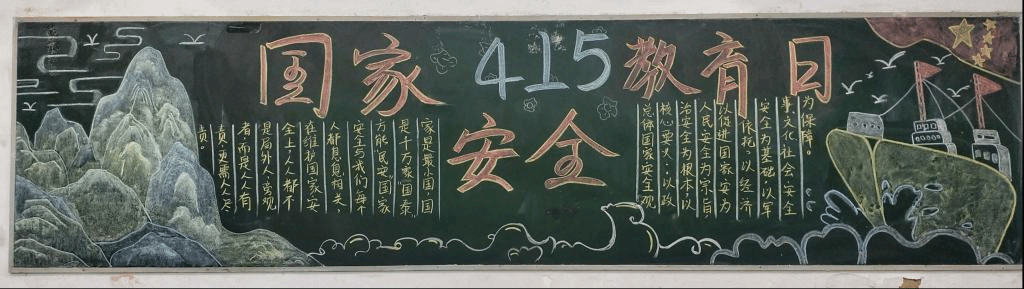 国家415教育日
安全
家是最小国,国
是千万家“国泰”
方能民安国家
安全与我们每个
人都息息相关,
在维护国家安
全上人人都不
是局外人、旁观
者,而是人人有
责,更需人人尽
责。
总体国家安全观
核心要义:以政
治安全为根本以
人民安全为宗旨
以促进国家安为
依托,以经济
安全为基础以军
事文化社会安全
为保障。